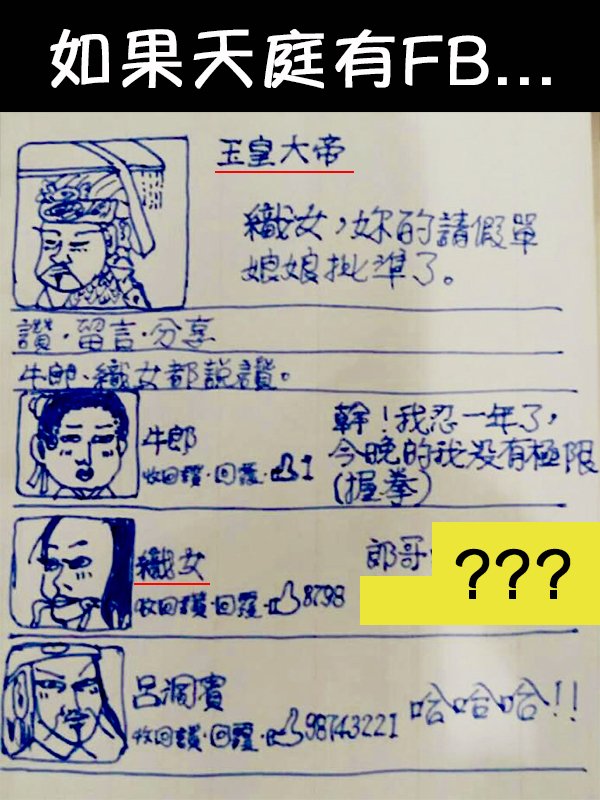 如果天庭有FB...
玉皇大帝
織女，妳的請假單
娘娘批準了。
讚·留言·分享
牛郎、織女都說讚。
牛郎
收回讚·回覆·1
幹！我忍一年了，
今晚的我没有極限
(握拳)
織女
收回讚·回覆·8798
郎哥
???
呂洞賓
收回讚·回覆·98743221
哈哈哈!!